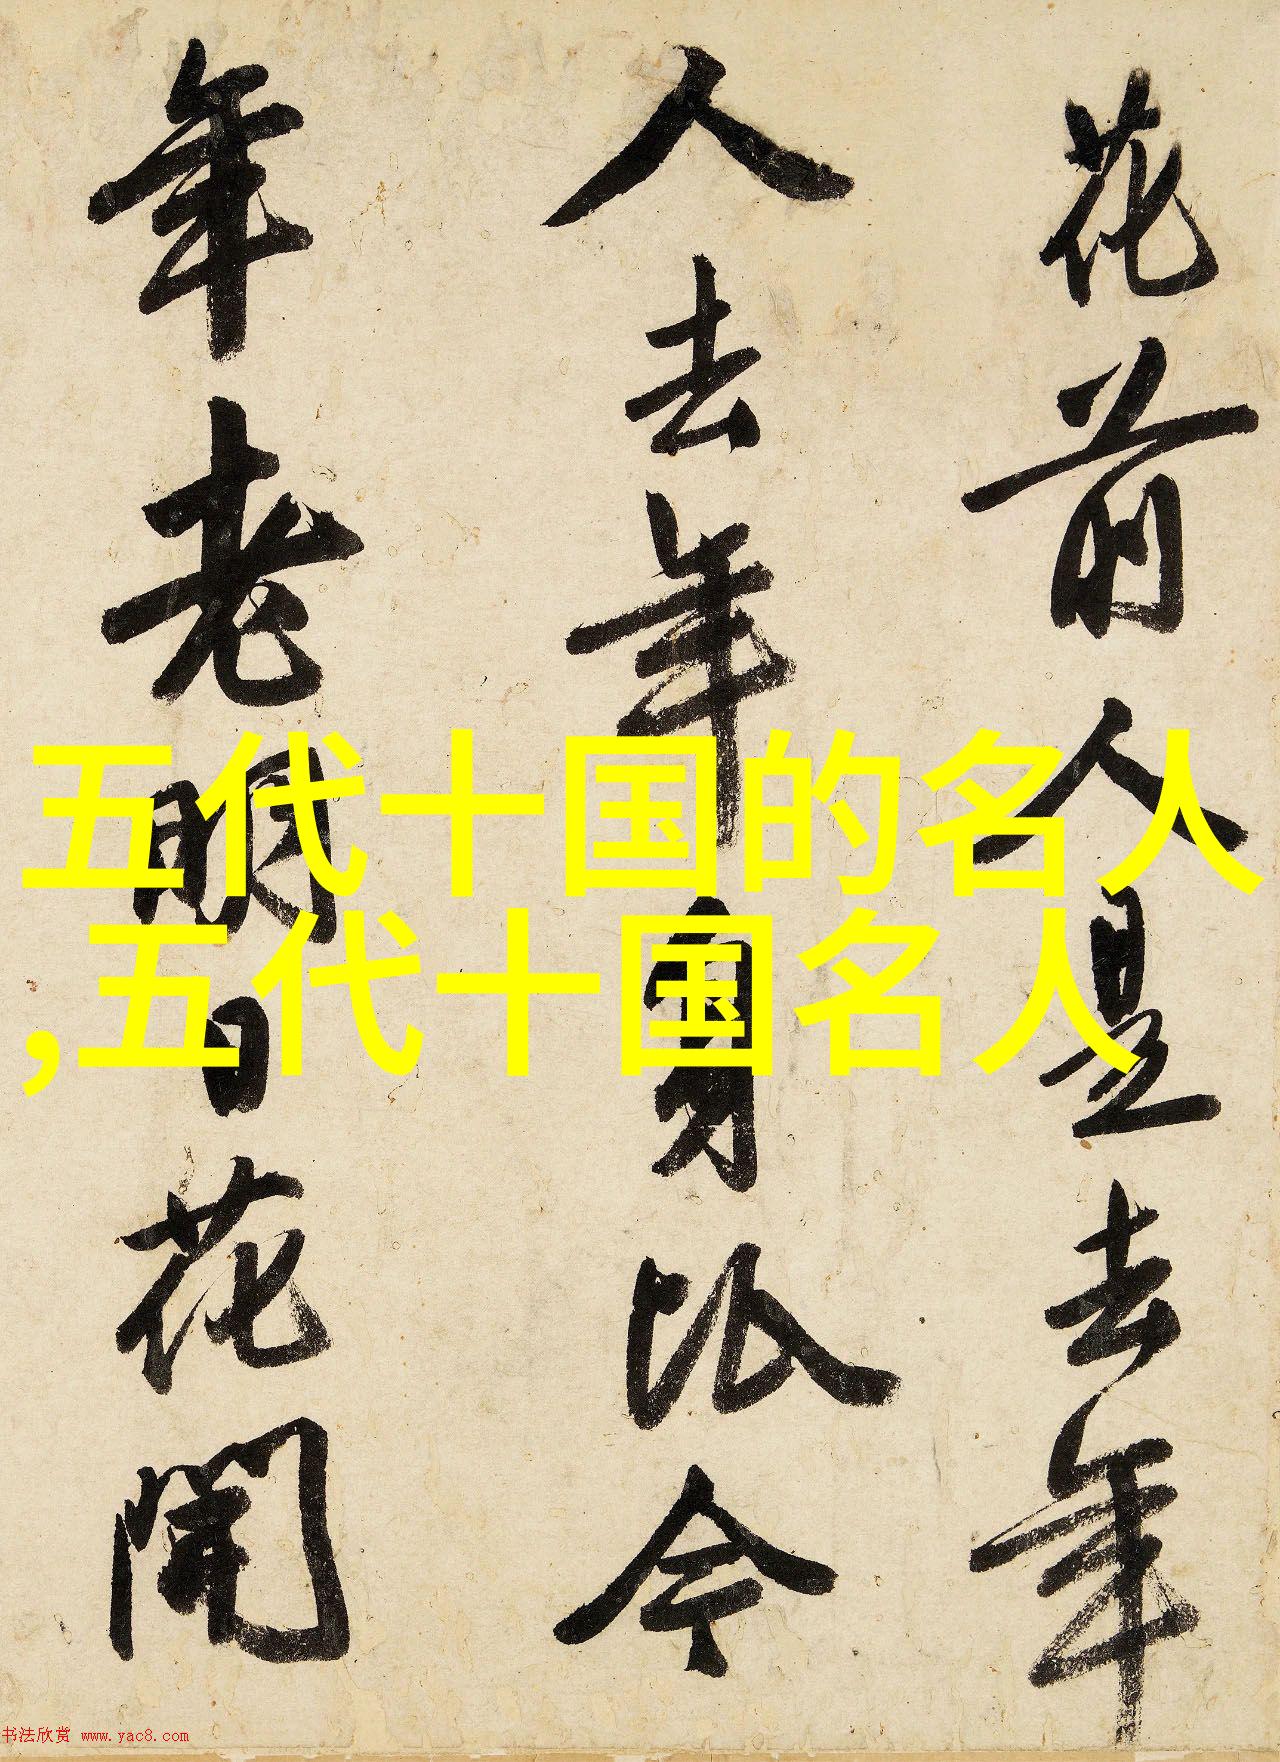 花前人是去年
人去年身比今
年老明日花開
五代十国的名人
,五代十国名人
书法欣赏 www.yac8.com